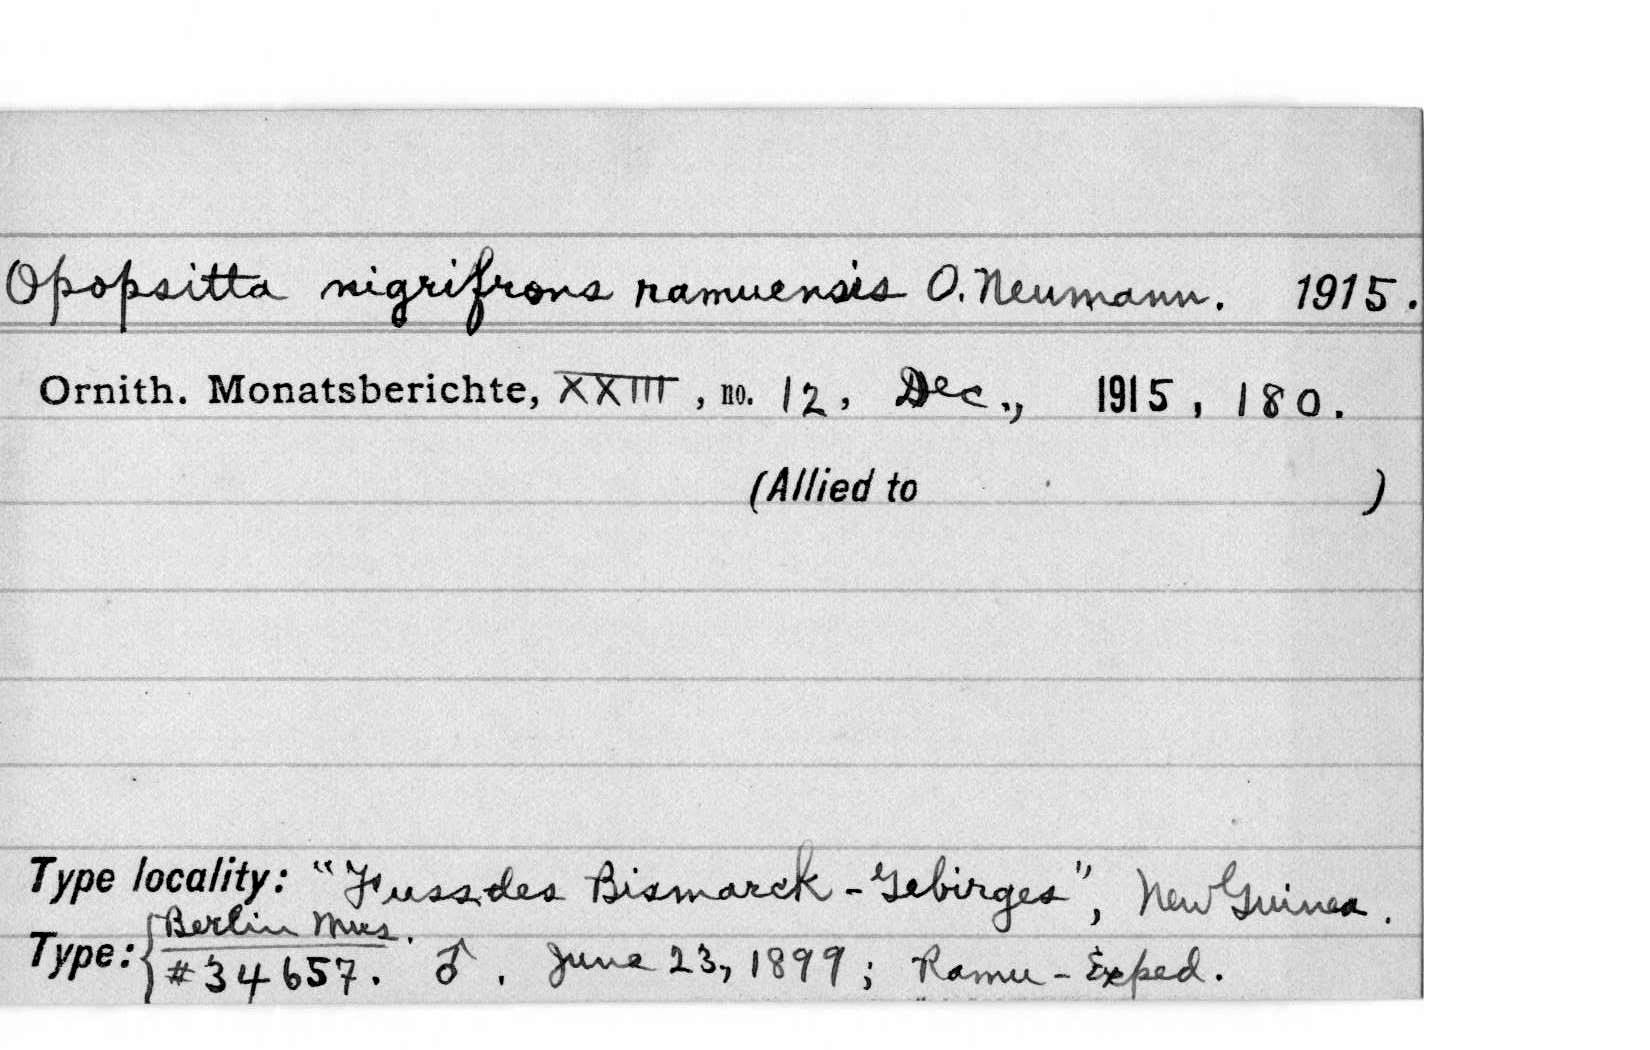 Opopsitta nigrifrons ramuensis O. Neumann. 1915.
Ornith. Monatsberichte, XXIII, no. 12, Dec., 1915, 180.
(Allied to )
Type locality: "Fuss des Bismarck-Gebirges", New Guinea.
Berlin Mus.
Type: #34657. ♂. June 23, 1899; Ramu-Exped.